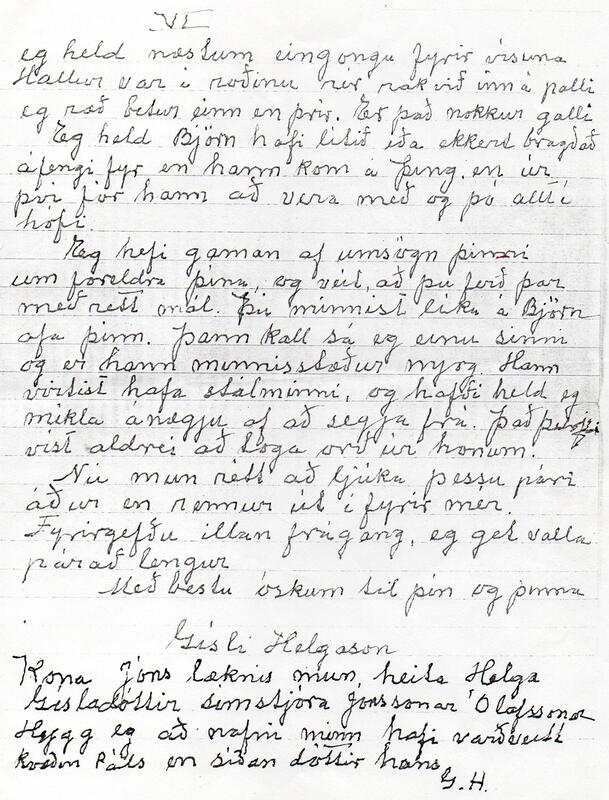 VI
eg held næstum eingöngu fyrir vísuna
Hallur var í roðinu rír rak við inn á palli
eg ræð betur einn en þrír. Er það nokkur galli
Eg held Björn hafi lítið eða ekkert bragðað
áfengi fyr en hann kom á Þing, en úr
því fór hann að vera með og þó allt í
hófi.
Eg hefi gaman af umsögn þinni
um foreldra þína, og veit, að þu ferð þar
með rétt mál. Þú minnist líka á Björn
afa þinn. Þann kall sá eg einu sinni
og er hann minnisstæður mjög. Hann
virtist hafa stálminni, og hafði held eg
mikla ánægju af að segja frá. Það þurfti
víst aldrei að toga orð úr honum.
Nú mun rétt að ljúka þessu pári
áður en rennur út í fyrir mer.
Fyrirgefðu illan frágang, eg get valla
párað lengur
Með bestu óskum til þín og þinna
Gísli Helgason
Kona Jóns læknis mun, heita Helga
Gísladóttir símstjóra Jonssonar Olafssonar
Hygg eg að nafni minn hafi varðveitt
kvæðin Páls en síðan dóttir hans
G.H.